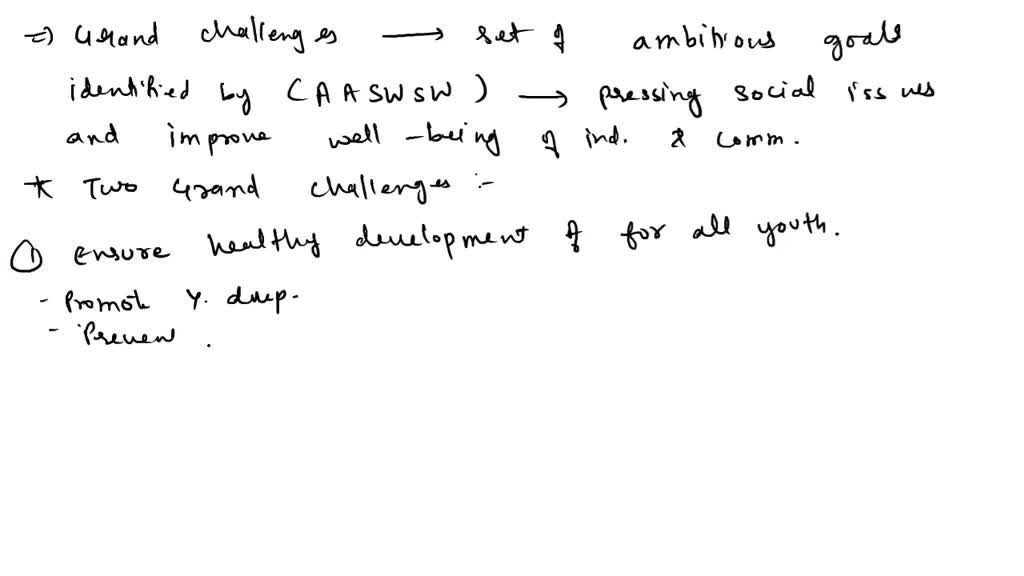 =) Grand challenges → set of ambitious goals
identified by (AASWSW) → pressing social issues
and improve well-being of ind. & comm.
* Two Grand challenges :-
① Ensure healthy development of for all youth.
- Promote Y.
- Preven